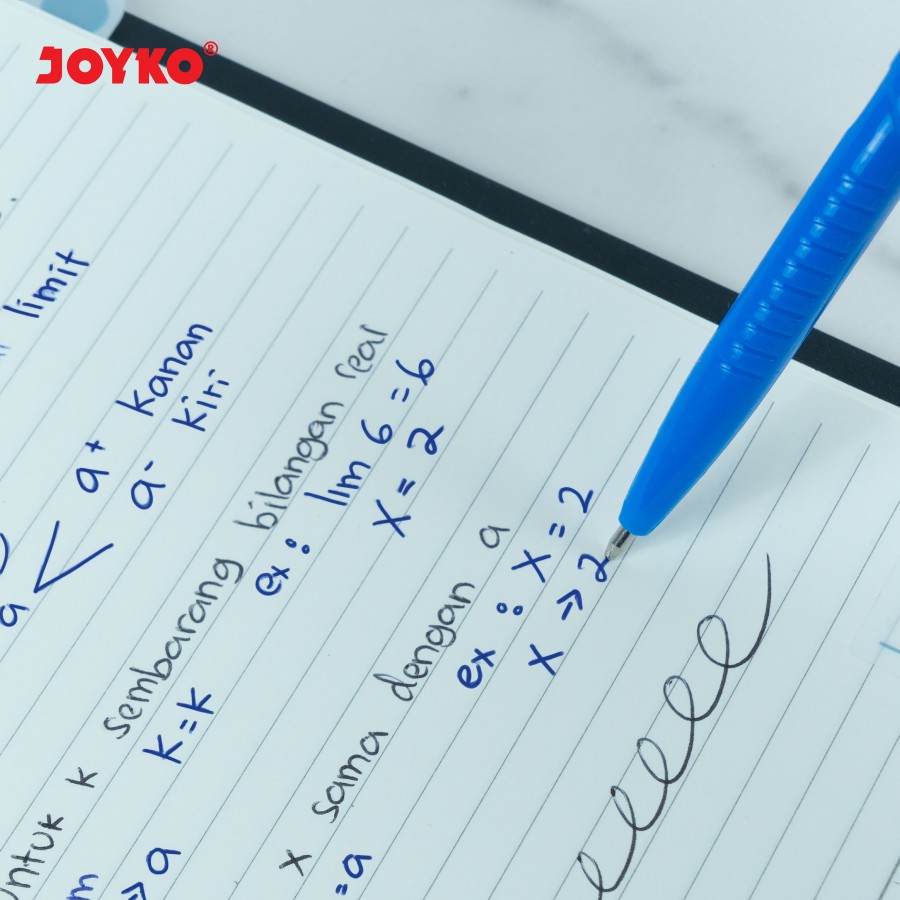 JOYKO®
limit
a+ kanan
a- kiri
a
untuk k sembarang bilangan real
k=k
ex : lim 6 = 6
x = 2
→ a
x sama dengan a
=a
ex : x = 2
x → 2